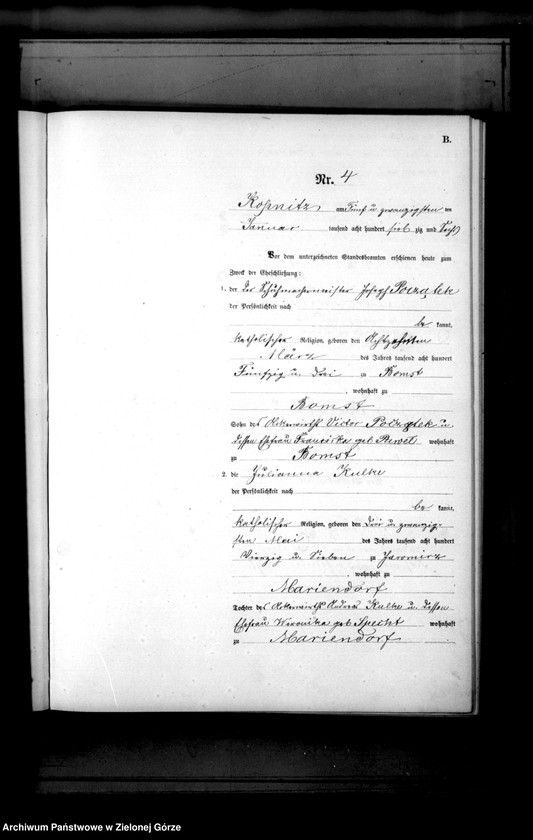 B.
Nr. 4
Kopnitz, am Fünf u zwanzigsten ten
Januar tausend acht hundert sieb zig und Sechs
Vor dem unterzeichneten Standesbeamten erschienen heute zum
Zweck der Eheschließung:
1. der der Schuhmachermeister Joseph
der Persönlichkeit nach
be kannt,
katholischer Religion, geboren den Achtzehnten
März des Jahres tausend acht hundert
Fünfzig u. Drei zu Bomst
, wohnhaft zu
Bomst
Sohn des Ackerwirths Victor u
dessen Ehefrau Franciska geb. wohnhaft
zu Bomst
2. die Julianna Kulke
der Persönlichkeit nach
be kannt,
katholischer Religion, geboren den Drei u zwanzig-
sten Mai des Jahres tausend acht hundert
Vierzig u. Sieben zu Jaromirz
, wohnhaft zu
Mariendorf
Tochter des Ackerwirths Andreas Kulke u. dessen
Ehefrau Veronika geb Specht wohnhaft
zu Mariendorf.
Archiwum Państwowe w Zielonej Górze